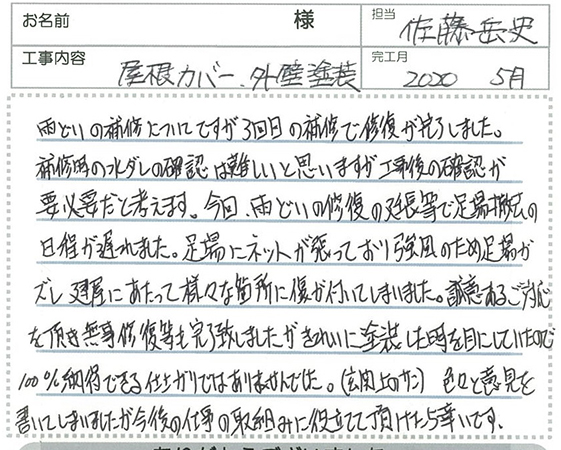 お名前 様 担当 佐藤岳史
工事内容 屋根カバー、外壁塗装 完工月 2020 5月
雨どいの補修についてですが3回目の補修で修復が完了しました。
補修時の水ダレの確認は難しいと思いますが工事後の確認が
要必要だと考えます。今回、雨どいの修復の延長等で足場撤去の
日程が遅れました。足場にネットが張っており強風のため足場が
ズレ建屋にあたって様々な箇所に傷が付いてしまいました。誠意あるご対応
を頂き無事修復等も完了致しましたがきれいに塗装した時を目にしていたので
100%納得できる仕上がりではありませんでした。(玄関上のサン) 色々と意見を
書いてしまいましたが今後の仕事の取組みに役立てて頂けたら幸いです。